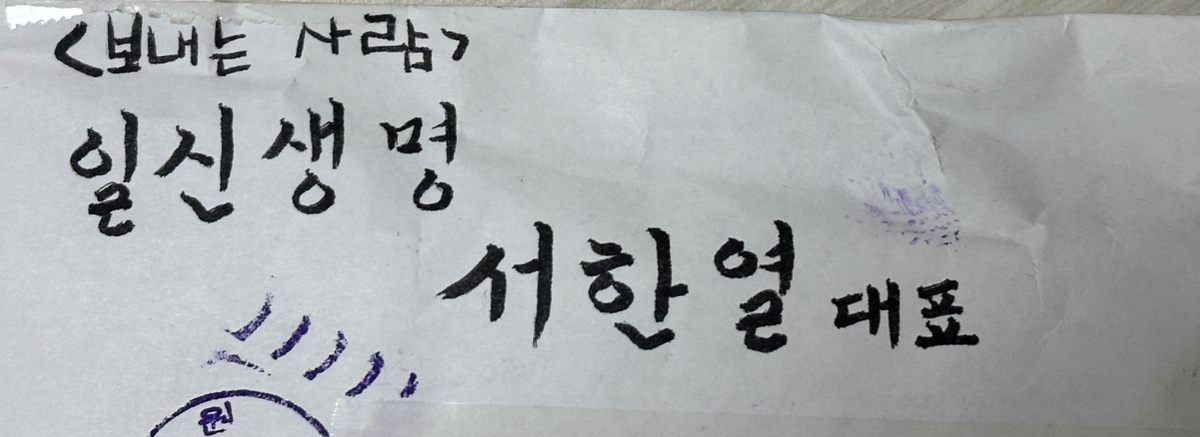 <보내는 사람>
일신생명
서한열 대표
원